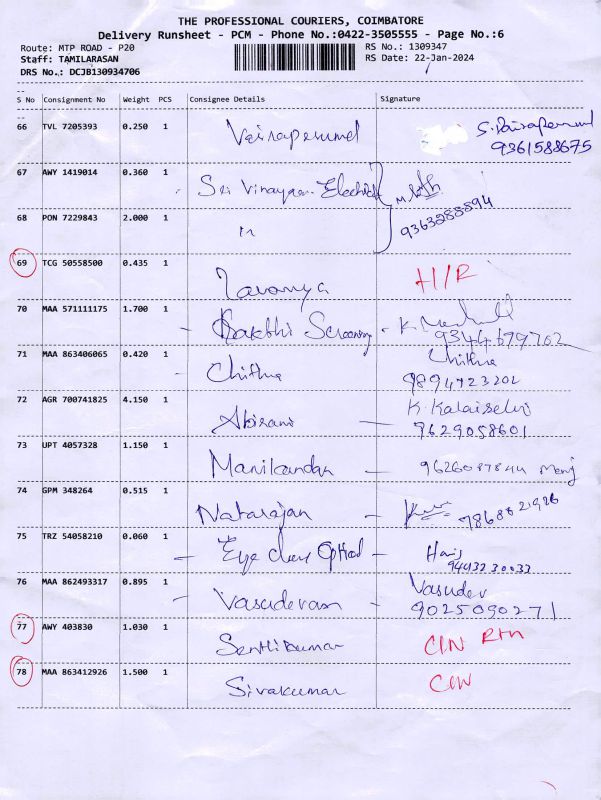 THE PROFESSIONAL COURIERS, COIMBATORE
Delivery Runsheet - PCM - Phone No.:0422-3505555 - Page No.:6
Route: MTP ROAD - P20 RS No.: 1309347
Staff: TAMILARASAN RS Date: 22-Jan-2024
DRS No.: DCJB130934706
--
S No Consignment No Weight PCS Consignee Details Signature
--
66 TVL 7205393 0.250 1 Vairaperumal S. Vairaperumal
9361588675
67 AWY 1419014 0.360 1 Sri Vinayaga Electricals
68 PON 7229843 2.000 1 " 9363288894
69 TCG 50558500 0.435 1 Lavanya H/R
70 MAA 571111175 1.700 1 - Sakthi Screening - K.
9344679702
71 MAA 863406065 0.420 1 Chithra Chithra
9894723202
72 AGR 700741825 4.150 1 Abirami K. Kalaiselvi
9629058601
73 UPT 4057328 1.150 1 Manikandan - 9626087844 Manoj
74 GPM 348264 0.515 1 Natarajan - 9868821926
75 TRZ 54058210 0.060 1 - Eye Care Optical - Haris
9443230033
76 MAA 862493317 0.895 1 - Vasudevan - Vasudev
9025090271
77 AWY 403830 1.030 1 Senthilkumar CIN Rtn
78 MAA 863412926 1.500 1 Sivakumar CIN